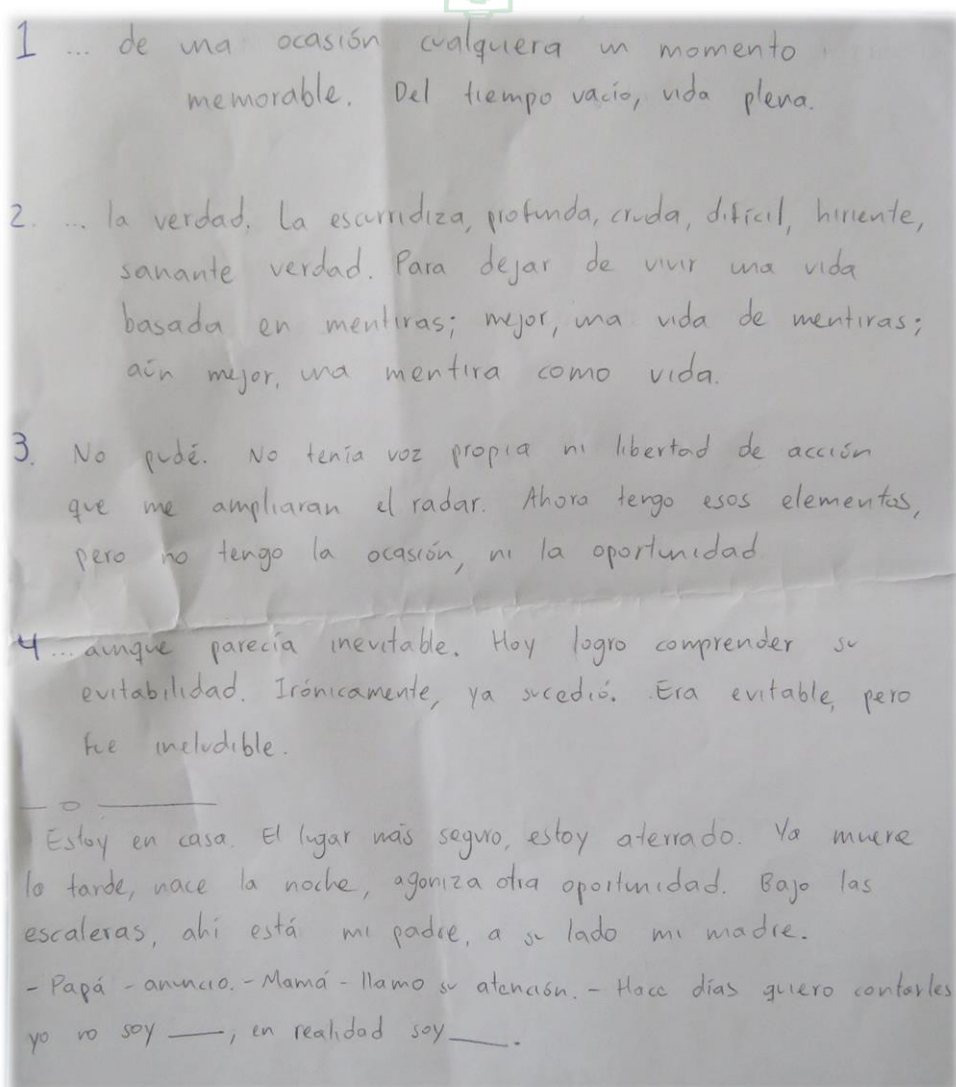 1 ... de una ocasión cualquiera un momento
memorable. Del tiempo vacío, vida plena.
2. ... la verdad. La escurridiza, profunda, cruda, difícil, hiriente,
sanante verdad. Para dejar de vivir una vida
basada en mentiras; mejor, una vida de mentiras;
aún mejor, una mentira como vida.
3. No pudé. No tenía voz propia ni libertad de acción
que me ampliaran el radar. Ahora tengo esos elementos,
pero no tengo la ocasión, ni la oportunidad
4 ... aunque parecía inevitable. Hoy logro comprender su
evitabilidad. Irónicamente, ya sucedió. Era evitable, pero
fue ineludible.
Estoy en casa. El lugar más seguro, estoy aterrado. Ya muere
la tarde, nace la noche, agoniza otra oportunidad. Bajo las
escaleras, ahí está mi padre, a su lado mi madre.
- Papá - anuncio. - Mamá - llamo su atención. - Hace días quiero contarles
yo no soy ___, en realidad soy ___.